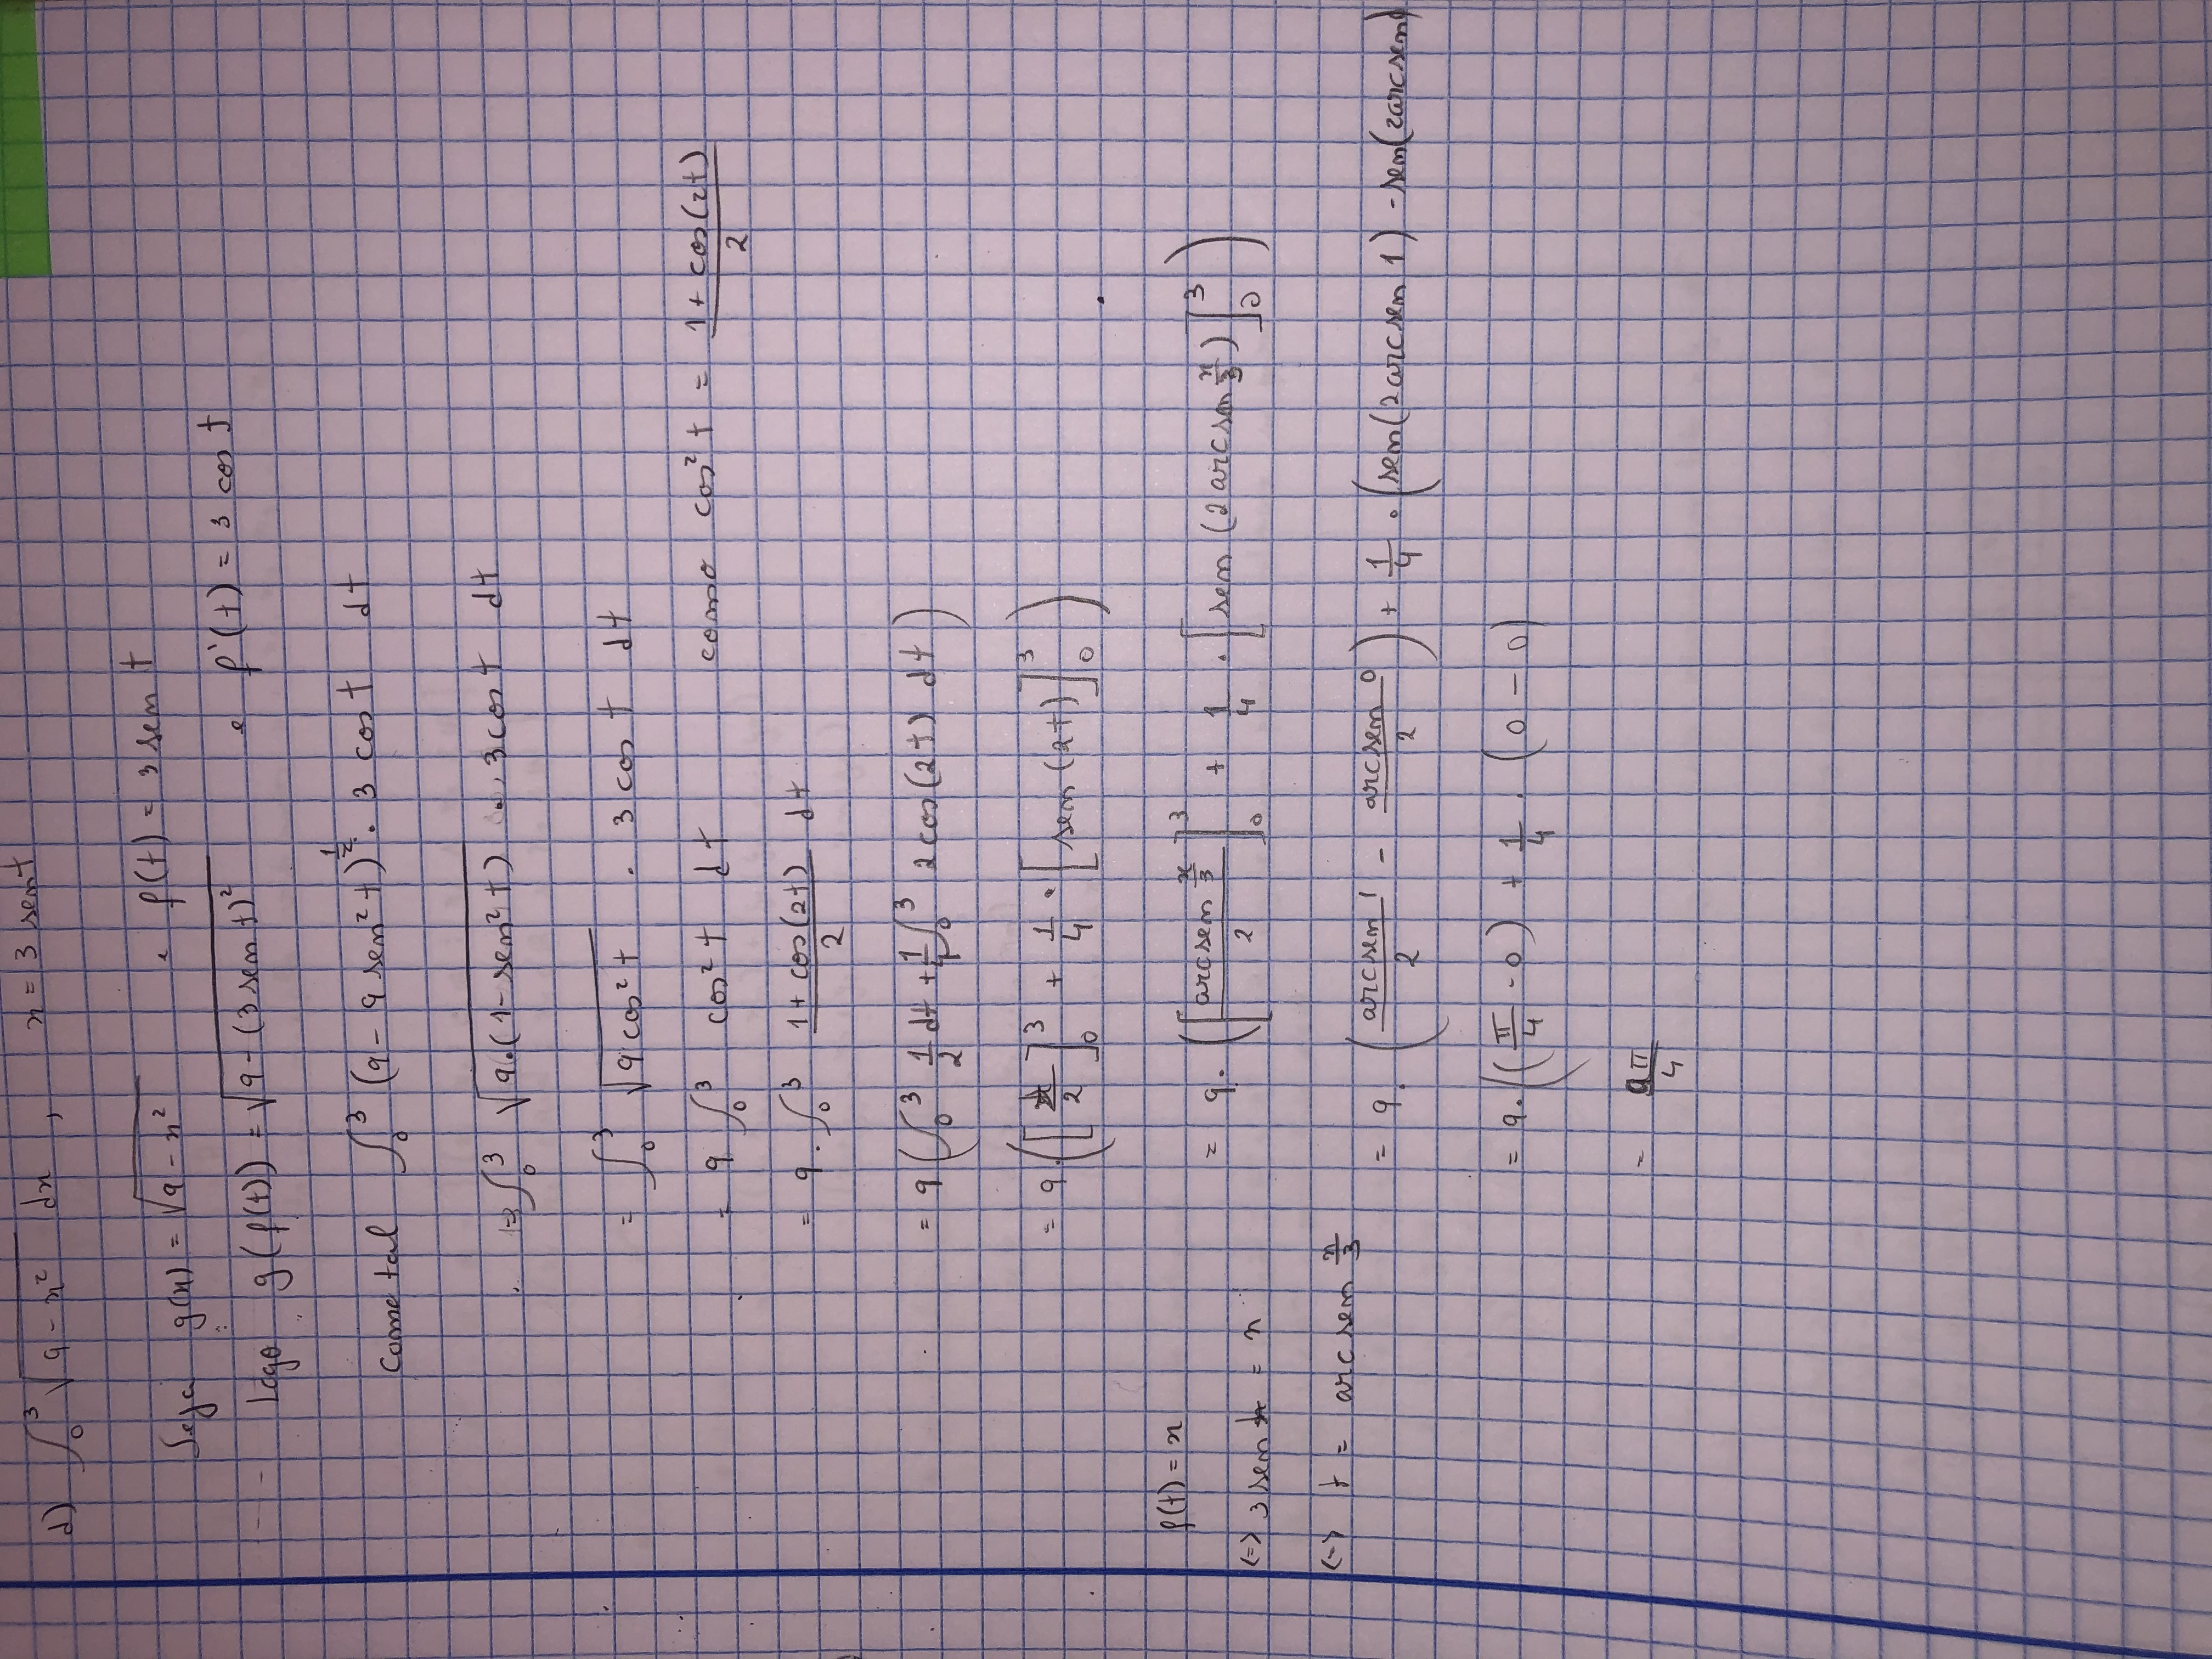 d) ∫₀³ √(9 - x²) dx , x = 3 sen t
Seja g(x) = √(9 - x²) e f(t) = 3 sen t
Logo g(f(t)) = √(9 - (3 sen t)²) e f'(t) = 3 cos t
Como tal ∫₀³ (9 - 9 sen² t)^(1/2) · 3 cos t dt
= ∫₀³ √(9·(1 - sen² t)) · 3 cos t dt
= ∫₀³ √(9 cos² t) · 3 cos t dt
= 9 ∫₀³ cos² t dt como cos² t = (1 + cos(2t))/2
= 9 · ∫₀³ (1 + cos(2t))/2 dt
= 9 (∫₀³ 1/2 dt + 1/4 ∫₀³ 2 cos(2t) dt)
= 9 · ([t/2]₀³ + 1/4 · [sen(2t)]₀³)
f(t) = x
<=> 3 sen t = x
<=> t = arcsen x/3
= 9 · ([(arcsen x/3)/2]₀³ + 1/4 · [sen(2 arcsen x/3)]₀³)
= 9 · ((arcsen 1)/2 - (arcsen 0)/2) + 1/4 · (sen(2 arcsen 1) - sen(2 arcsen 0)
= 9 · ((π/4 - 0) + 1/4 · (0 - 0)
= 9π/4